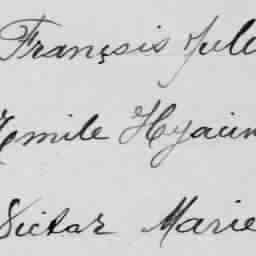 François Jule
Emile Hyacin
Victor Marie